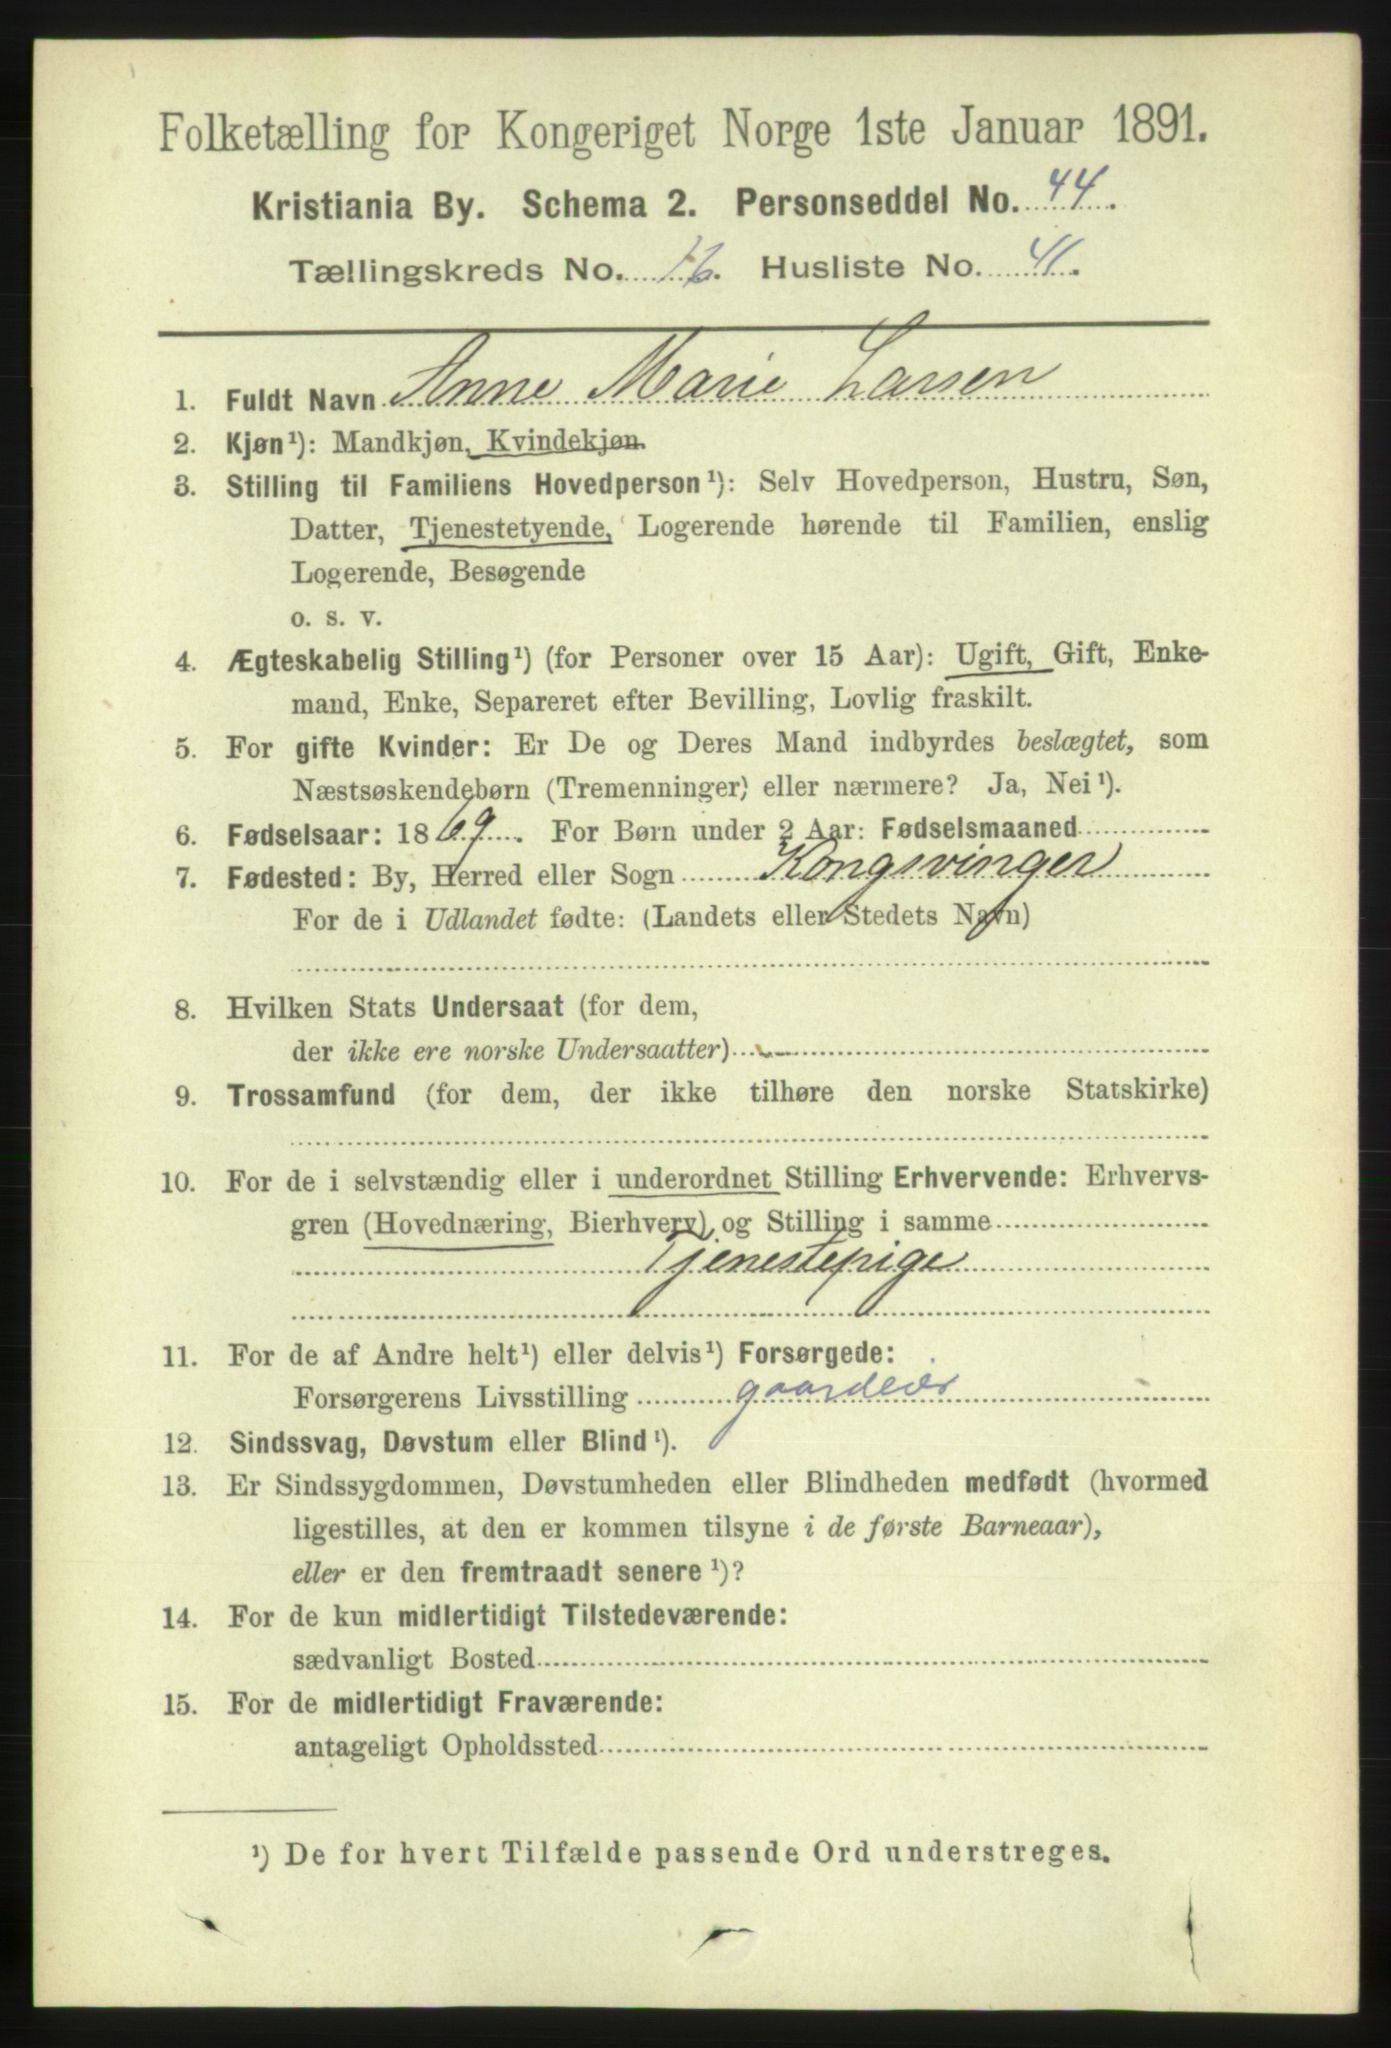 Folketælling for Kongeriget Norge 1ste Januar 1891.
Kristiania By. Schema 2. Personseddel No. 44.
Tællingskreds No. 16. Husliste No. 41.
1. Fuldt Navn Anne Marie Larsen
2. Kjøn¹): Mandkjøn, Kvindekjøn.
3. Stilling til Familiens Hovedperson¹): Selv Hovedperson, Hustru, Søn,
Datter, Tjenestetyende, Logerende hørende til Familien, enslig
Logerende, Besøgende
o. s. v.
4. Ægteskabelig Stilling¹) (for Personer over 15 Aar): Ugift, Gift, Enke-
mand, Enke, Separeret efter Bevilling, Lovlig fraskilt.
5. For gifte Kvinder: Er De og Deres Mand indbyrdes beslægtet, som
Næstsøskendebørn (Tremenninger) eller nærmere? Ja, Nei¹).
6. Fødselsaar: 1869. For Børn under 2 Aar: Fødselsmaaned
7. Fødested: By, Herred eller Sogn Kongsvinger
For de i Udlandet fødte: (Landets eller Stedets Navn)
8. Hvilken Stats Undersaat (for dem,
der ikke ere norske Undersaatter)
9. Trossamfund (for dem, der ikke tilhøre den norske Statskirke)
10. For de i selvstændig eller i underordnet Stilling Erhvervende: Erhvervs-
gren (Hovednæring, Bierhverv) og Stilling i samme
Tjenestepige
11. For de af Andre helt¹) eller delvis¹) Forsørgede:
Forsørgerens Livsstilling gaardeier
12. Sindssvag, Døvstum eller Blind¹).
13. Er Sindssygdommen, Døvstumheden eller Blindheden medfødt (hvormed
ligestilles, at den er kommen tilsyne i de første Barneaar),
eller er den fremtraadt senere¹)?
14. For de kun midlertidigt Tilstedeværende:
sædvanligt Bosted
15. For de midlertidigt Fraværende:
antageligt Opholdssted
¹) De for hvert Tilfælde passende Ord understreges.